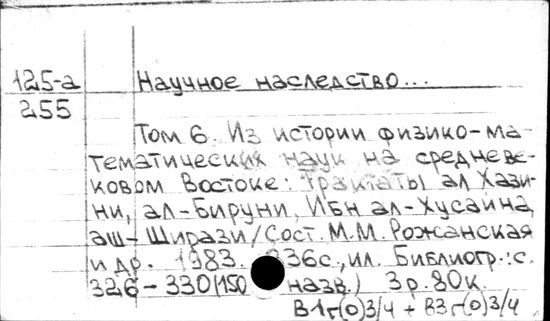 125-а Научное наследство...
255
Том 6. Из истории физико-ма-
тематических наук на средневе-
ковом Востоке: Трактаты ал Хази-
ни, ал-Бируни, Ибн ал-Хусайна,
аш-Ширази/Сост. М.М. Рожанская
и др. 1983. 336с., ил. Библиогр.: с.
326-330(150 назв.) 3р.80к.
В1г(0)3/4 + В3г(0)3/4